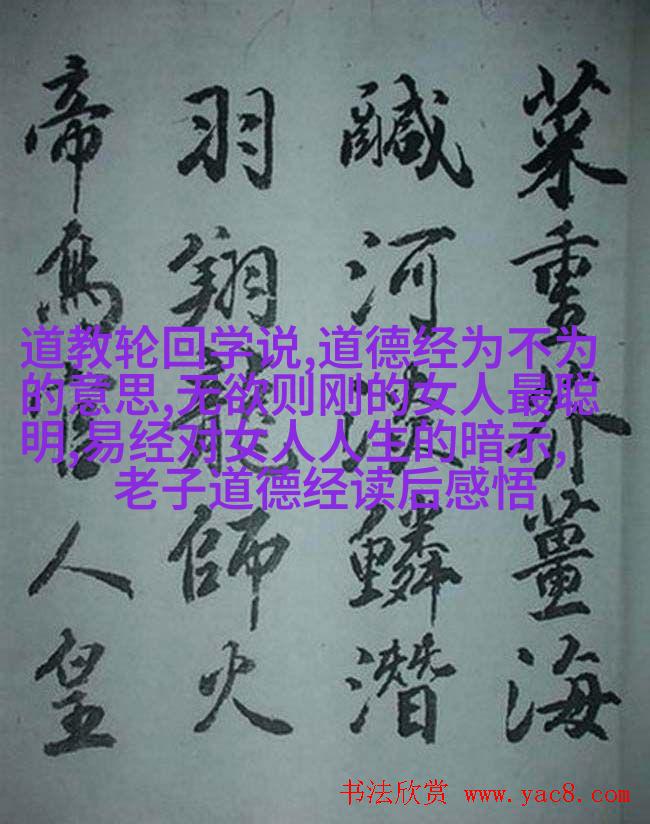 菜重芥薑海
鹹河淡鱗潛
羽翔龍師火
帝鳥官人皇
道教轮回学说,道德经为不为
的意思,无欲则刚的女人最聪
明,易经对女人人生的暗示,
老子道德经读后感悟
书法欣赏 www.yac8.com